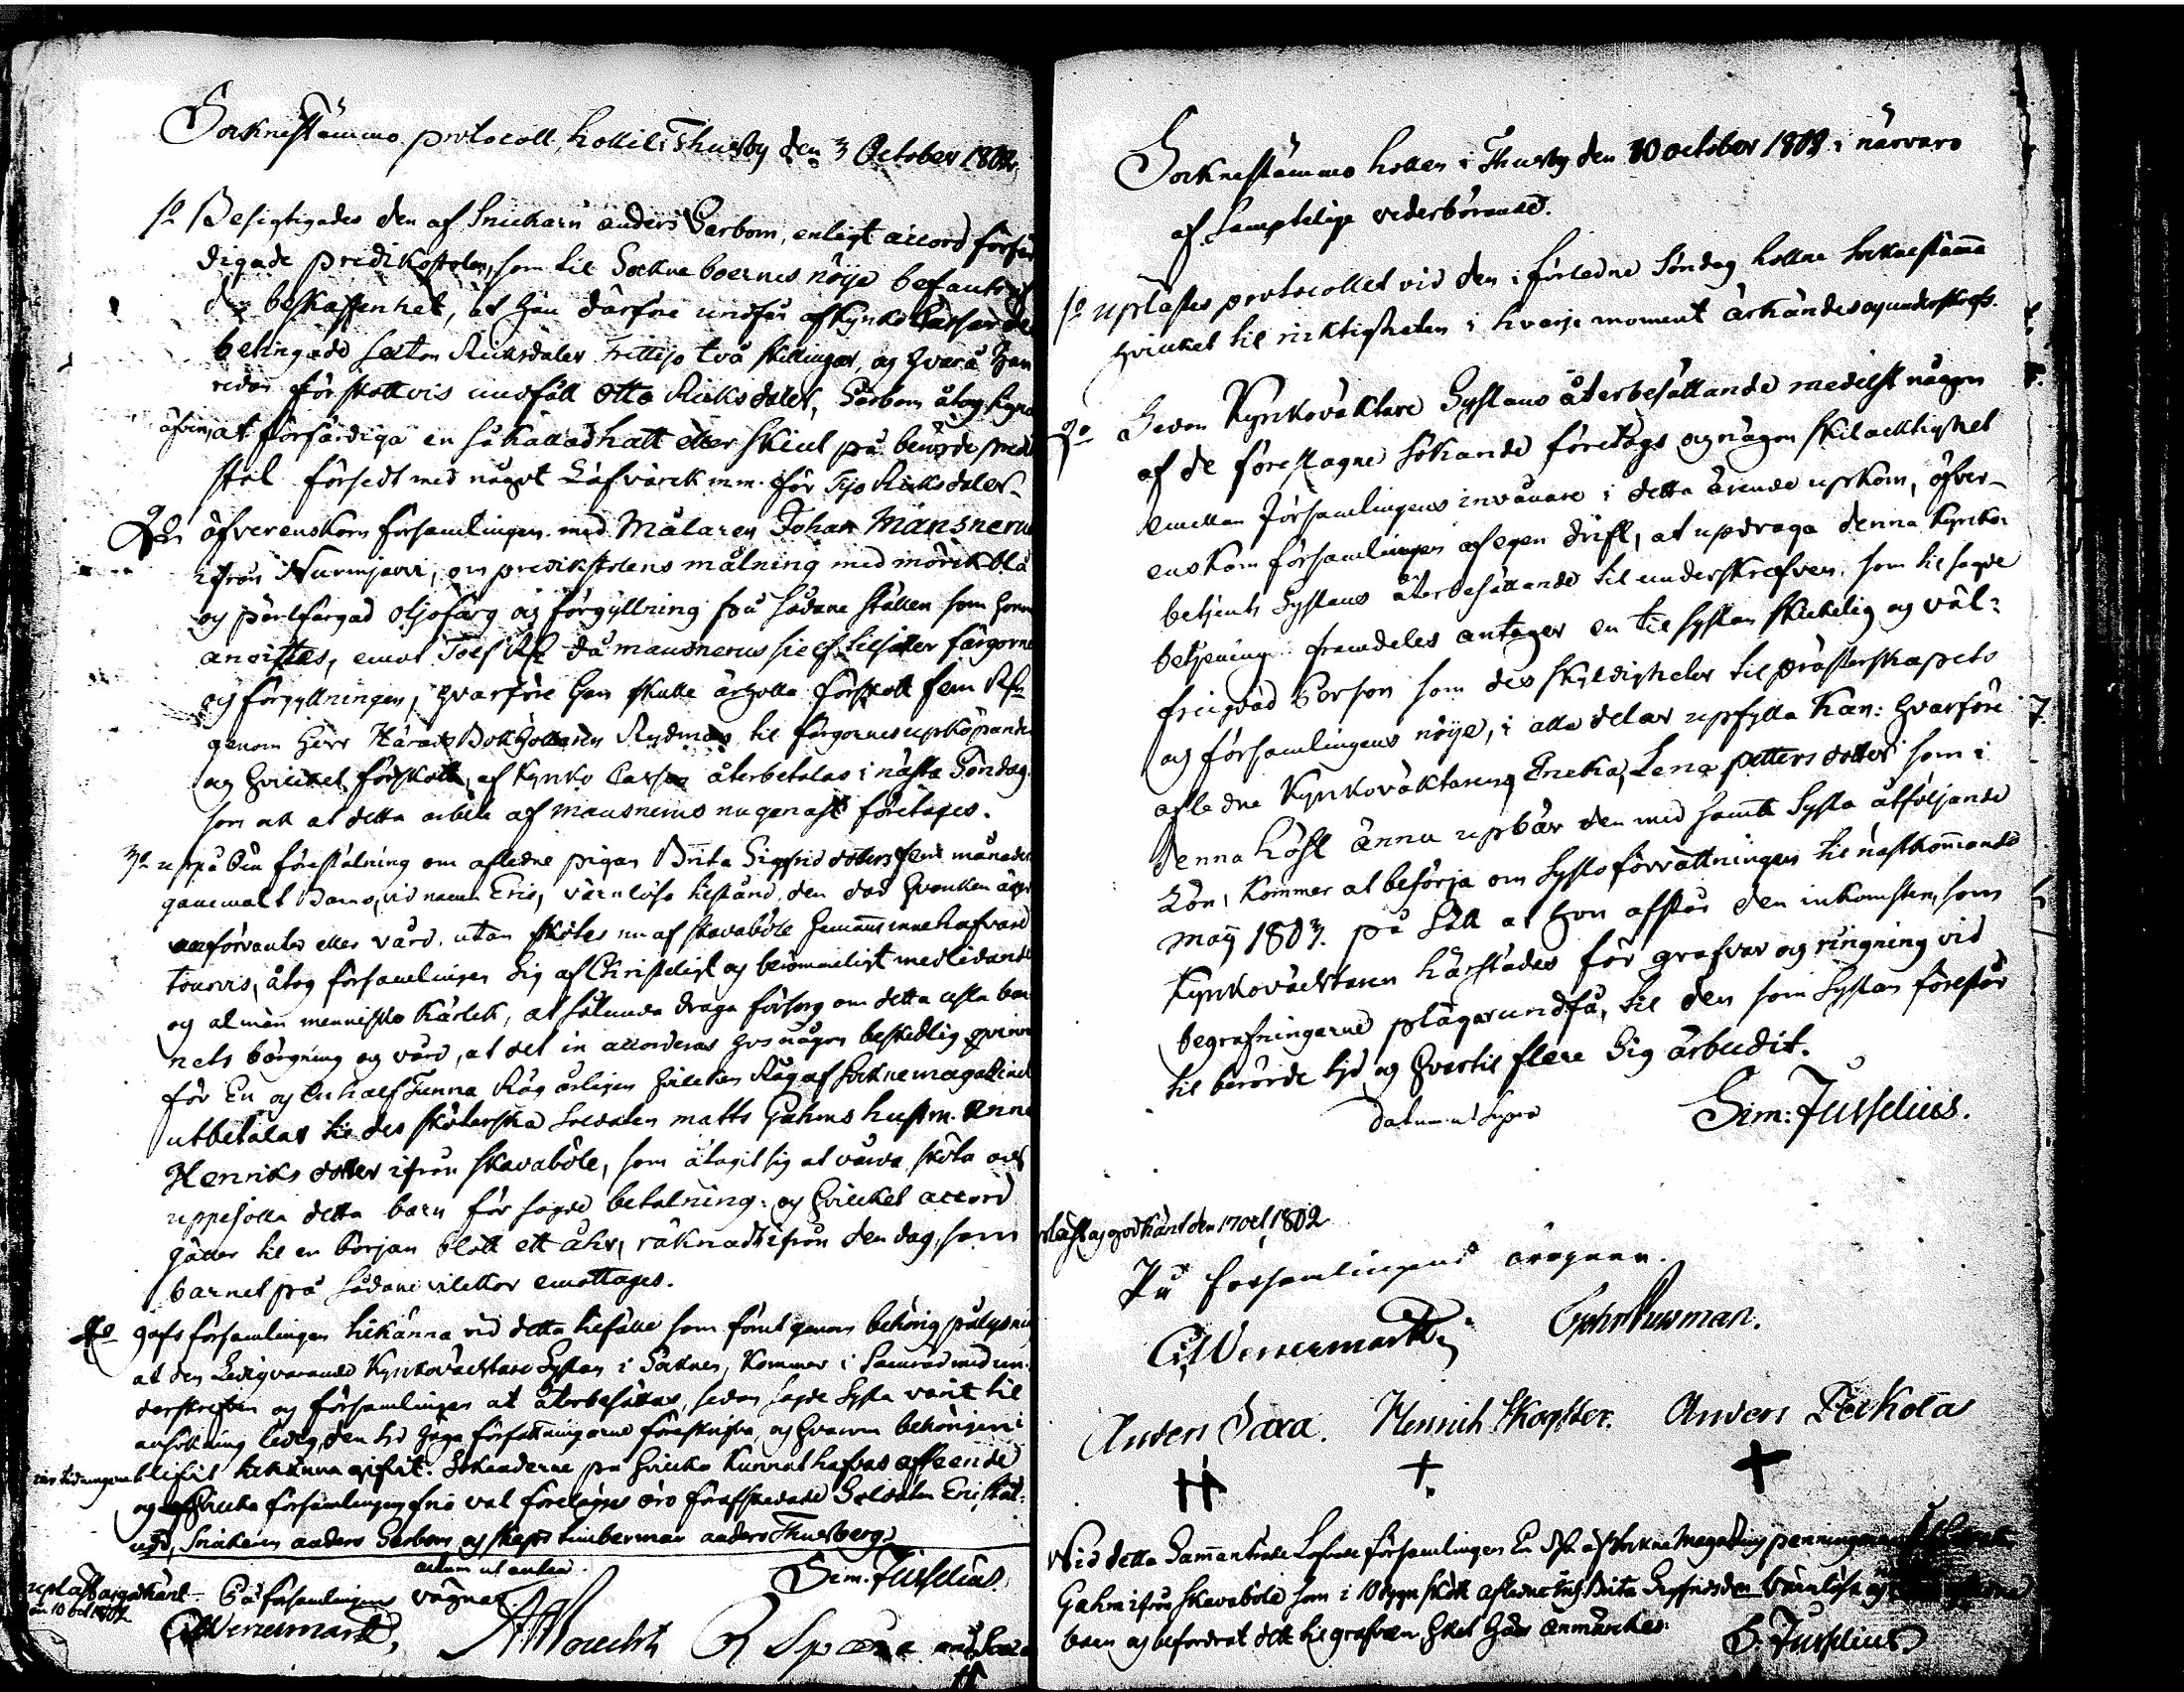 Socknestämmo protocoll, hollit i Thusby den 3 October 1802.
1o Besigtigades den af Snickarn anders Garbom, enligt accord förfär
digade predikstolen, som til Sockneboernes nöije befants af
beskaffenhet, at han därföre undfår af Kyrko Cassan de
betingade sexton Riksdaler Trettijo två skillingar, og hvarå han
redan förskottvis undfått otto Riksdaler, Garbom åtog sig
äfven, at förfärdiga en så kallad hatt eller skiul på berörde predik
stol försedt med något Löfvärck m.m. för Tijo Riksdaler.
2o öfverenskom församlingen med Målaren Johan Mansnerus
ifrån Nurmijärvi, om predikstolens målning med mörckblå
og pärlfärgad oljofärg og förgyllning på sådane ställen som honom
anvistes, emot Tolf Rd då mansnerus sielf tilsätter färgorne
og förgyllningen, hvarföre han skulle ärholla förskott fem Rd
genom Herr Härads Bokhollaren Rydman til färgornes upköpande
og hvilcket förskott, af Kyrko Cassan återbetalas i nästa Söndag
som ock at detta arbete af mansnerus nu genast företages.
3o uppå den föreställning om afledne pigan Brita Sigfrids dotters fem månader
gammalt Barns, vid namn Eric, värnlösa tilstånd, den där hvarcken äger
anförvanter eller vård, utan skötes nu af skavaböle hemmans innehafvare
tourvis, åtog församlingen sig af Christeligt og berömmeligt medlidande
og almän menniskio kärlek, at sålunda draga försorg om detta usla bar
nets bärgning og vård, at det in accorderas hos någon beskedlig qvinna
för En og En half Tunna Råg årligen hvilcken Råg af Sockne magazinet
utbetalas til des skötarska Soldaten matts Gahms hustru Anna
Henriks dotter ifrån Skavaböle, som åtagit sig at vårda sköta och
uppeholla detta barn för sagde betalning: og hvilcket accord
gäller til en början blott ett åhr, räknadt ifrån den dag, som
barnet på sådane vilckor emottages.
4o gafs församlingen tilkänna vid detta tilfälle som förut genom behörig pålysning
at den Ledigvarande Kyrkovacktare Syslan i Socknen, kommer i Samråd med un
derskrefven og församlingen at återbesättas, sedan sagde Sysla varit til
ansökning ledig, den tid höga författningarne föreskrifva, og hvarom behörigen i
tidningarne blifvit tilkänna gifvit. Sökanderne på hvilcka
og hvilcka församlingens fria val förelägges äro förafskedade Soldaten Eric
Snickaren anders Garbom og Skeps timberman anders Thusberg.
actum ut antea.
Sim. Jusselius
upläst og godkänt
den 10 Oct 1802
På församlingens vägnar
C Wenermark,

Socknestämmo hollen i Thusby den 10 october 1802 i närvaro
af Samptelige vederbörande.
1o uplästes protocollet vid den i förledne söndag holne Socknestämma
hvilcket til ricktigheten i hvarje moment ärkändes og underskrefs.
2o Sedan Kyrkovacktare Syslans återbesättande medelst någon
af de föreslagne sökande företogs og någon skilacktighet
emellan församlingens invånare i detta ärende upkom, öfver-
enskom församlingen af egen drift, at updraga denna Kyrko-
betjents Syslans återbesättande til underskrefven, som til sagde
betjening framdeles antager en til syslan skickelig og väl-
frejdad Person som des skyldigheter til prästerskapets
og församlingens nöije, i alla delar upfylla kan: hvarföre
afledne Kyrkovacktarens Encka, Lena petters dotter som i
denna höst ännu upbär den med samma Sysla åtföljande
Lön, kommer at besörja om Syslo förvaltningen til nästkommande
maij 1803. på Sätt at hon afstår den inkomsten, som
Kyrkovacktaren härstädes för grafvar og ringning vid
begrafningarne plägar undfå, til den som Syslan förestår
til berörde tijd og hvartil flere Sig ärbudit.
Datum ut supra
Sim: Jusselius.
upläst og godkänt den 17 Oct 1802
På församlingens vägnar.
C Wenermark
Anders Saxa. Henrich Skogster. Anders Peckola
Vid detta Sammanträde Lofvade församlingen En Rd af Sockne Magazins penningarne
Gahm ifrån Skavaböle som i 10 dygn skött afledne Brita Sigfridsdotters värnlösa
barn og befordrat dett til grafven hvilket här anmärckes.
S. Jusselius